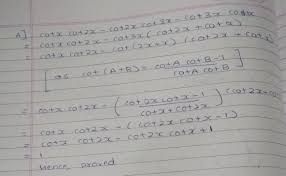 A] cotx cot2x - cot2x cot3x - cot3x cotx
= cotx cot2x - cot3x (cot2x + cotx)
= cotx cot2x - cot (2x+x) (cot2x + cotx)
[as cot (A+B) = cotA cotB - 1 / cotA cotB]
= cotx cot2x - (cot2x cotx - 1 / cotx + cot2x) (cot2x +
= cotx cot2x - (cot2x cotx - 1)
= cotx cot2x - cot2x cotx + 1
= 1
Hence proved